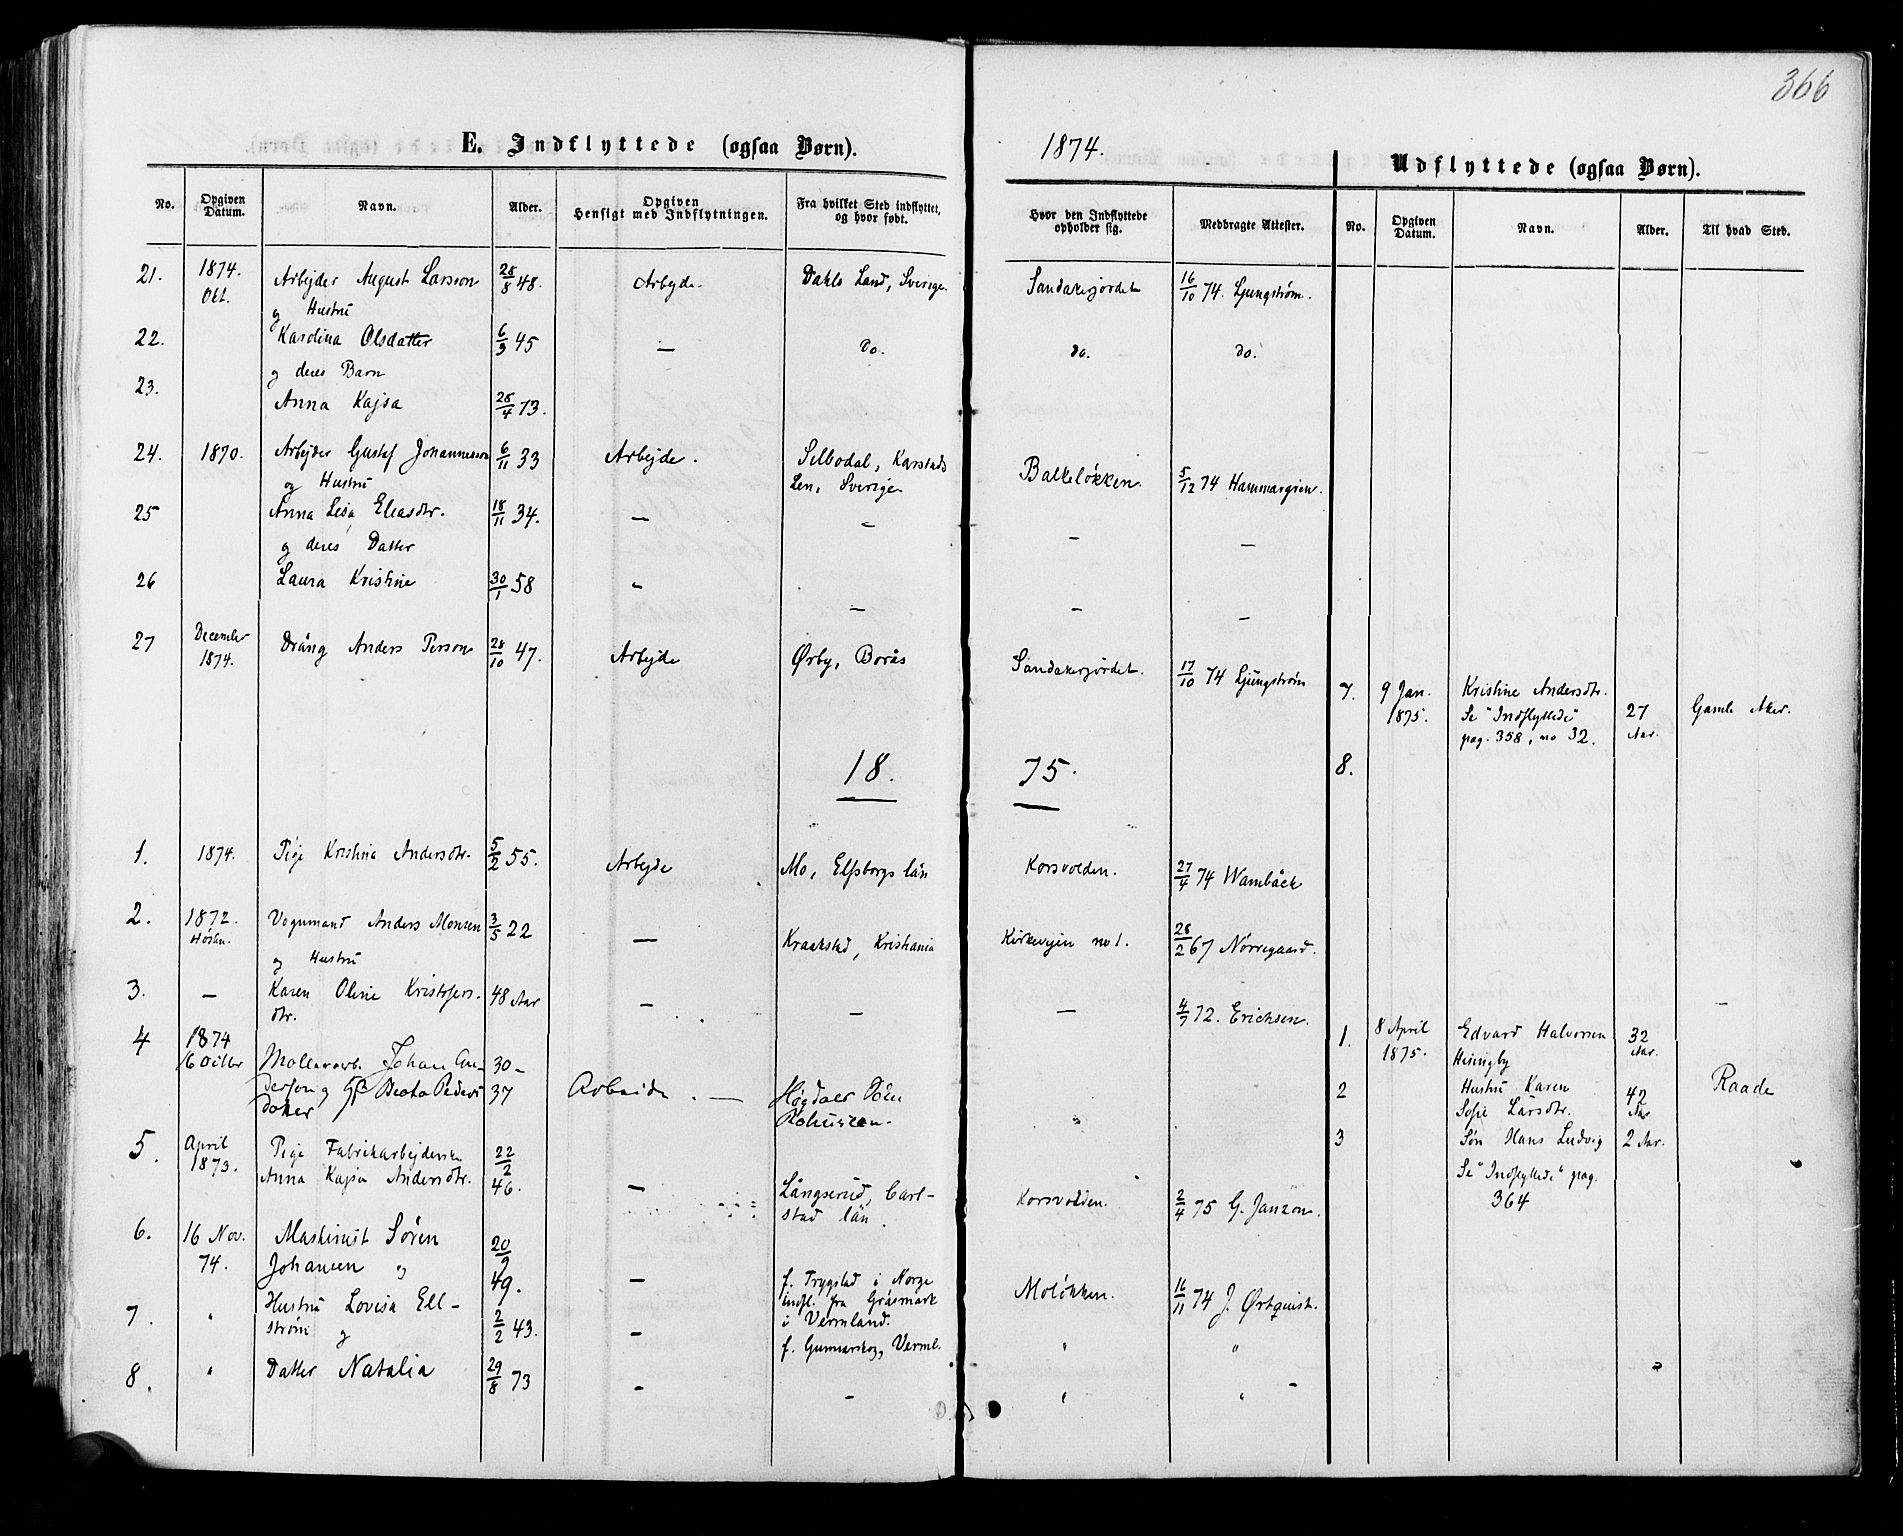 366
E. Indflyttede (ogsaa Børn).
1874.
Udflyttede (ogsaa Børn).
No. Opgiven Datum. Navn. Alder. Opgiven Hensigt med Indflytningen. Fra hvilket Sted indflyttet, og hvor født. Hvor den Indflyttede opholder sig. Medbragte Attester. No. Opgiven Datum. Navn. Alder. Til hvad Sted.
21. 1874. Okt. Arbejder August Larsson 28/8 48. Arbejde. Dahls Land, Sverige. Sandakerjordet 16/10 74. Ljungstrøm.
og Hustru
22. Karolina Olsdatter 6/3 45 — do. do. do.
og deres Barn
23. Anna Kajsa 28/4 73.
24. 1870. Arbejder Gustaf Johannesson 6/11 33 Arbejde. Silbodal, Karstads Len, Sverige Balkeløkken. 5/12 74 Hammargren.
og Hustru
25 Anna Lisa Eliasdtr. 18/11 34. — — — —
og deres Datter
26 Laura Kristine 30/1 58 — — — —
27 December 1874. Dräng Anders Person 28/10 47. Arbejde Ørby, Borås Sandakerjordet. 17/10 74 Ljungstrøm
7. 9 Jan. 1875. Kristine Andersdtr. 27 Aar. Gamle Aker.
Se "Indflyttede"
pag. 358, no 32.
8.
18. 75.
1. 1874. Pige Kristina Andersdtr. 5/2 55. Arbejde Mo, Elfsborgs län Korsvolden. 27/4 74 Wambäck
2. 1872. Høsten. Vognmand Anders Monsen 3/5 22 — Kraakstad, Kristiania Kirkevejen no 1. 28/2 67 Nørregaard.
og Hustru
3. — Karen Oline Kristofers- 48 Aar — — — 4/7 72. Erichsen.
dtr.
4 1874 16 Octbr Møllerarb. Johan An- 30 —
derson og Beata Peders 37 Arbeide. —
datter
1. 8 April 1875. Edvard Halvorsen 32 Aar.
Heningby
2 Hustru Karen 42 Aar Raade
Sofie Larsdtr.
3 Søn Hans Ludvig 2 Aar.
Se "Indflyttede" pag.
364
5. April 1873. Pige Fabrikarbejderske 22/2 46.
Anna Kajsa Andersdtr. — Långserud, Carl-
stad län. Korsvolden. 2/4 75 G. Janzon.
6. 16 Nov. 74. Maskinist Sören 20/9 49.
Johansen og — f. Trygstad i Norge
indfl. fra Gräsmark
i Vermland. Moløkken. 16/11 74 J. Ørtquist.
7. " Hustru Lovisa Ell-
strøm og 2/2 43. — f. Gunnarskog, Verml. " "
8. " Datter Natalia 29/8 73 — — " "